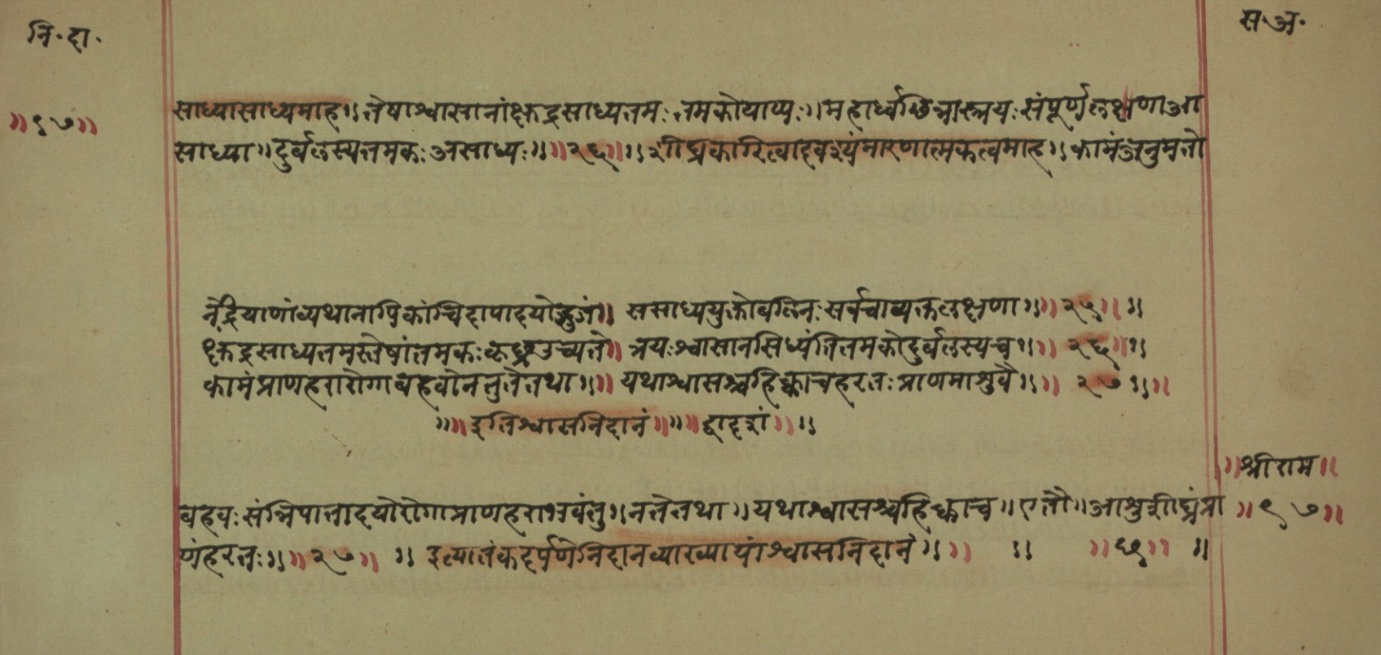 नि·दा·
स·अ·
॥९७॥
साध्यासाध्यमाह॥तेषाश्वासानांक्षुद्रसाध्यतमः तमकोयाप्यः॥महार्ध्वछिन्नास्त्रयः संपूर्णलक्षणाआ
साध्या॥दुर्बलस्यतमकः असाध्यः॥॥२६॥॥शीघ्रकारित्वादवश्यंमारणात्मकत्वमाह॥कामंअनुमतो
नेंद्रियाणांव्यथानापिकांचिदापादयोद्रुजं॥ ससाध्ययुक्तोबलिनः सर्वेचाव्यक्तलक्षणा॥॥२५॥॥
क्षुद्रसाध्यतमस्तेषांतमकः कृछ्रउच्यते॥ त्रयःश्वासानसिध्यंतितमकोदुर्बलस्यच॥॥२६॥॥
कामंप्राणहरारोगाबहवोनतुतेतथा॥॥ यथाश्वासश्चहिक्काचहरतः प्राणमाशुवै॥॥२७॥॥
॥॥इतिश्वासनिदानं॥॥॥द्वादशं॥॥
॥श्रीराम॥
बहवः संन्निपातादयोरोगाप्राणहराभवंतु॥नतेतथा॥यथाश्वासश्चहिक्काच॥एतौ॥आशुशीघ्रंप्रा
॥९७॥
णंहरतः॥॥२७॥ ॥ इत्यातंकदर्पणेनिदानव्याख्यायांश्वासनिदानं॥॥ ॥